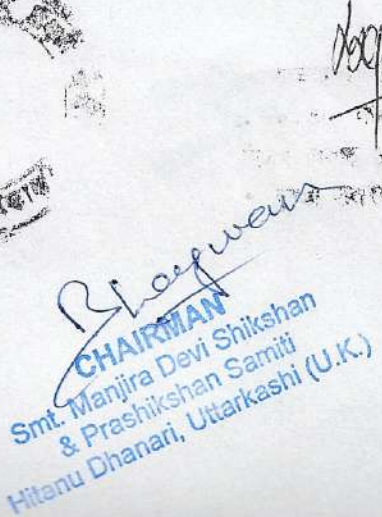 Bhagwan
CHAIRMAN
Smt. Manjira Devi Shikshan
& Prashikshan Samiti
Hitanu Dhanari, Uttarkashi (U.K.)